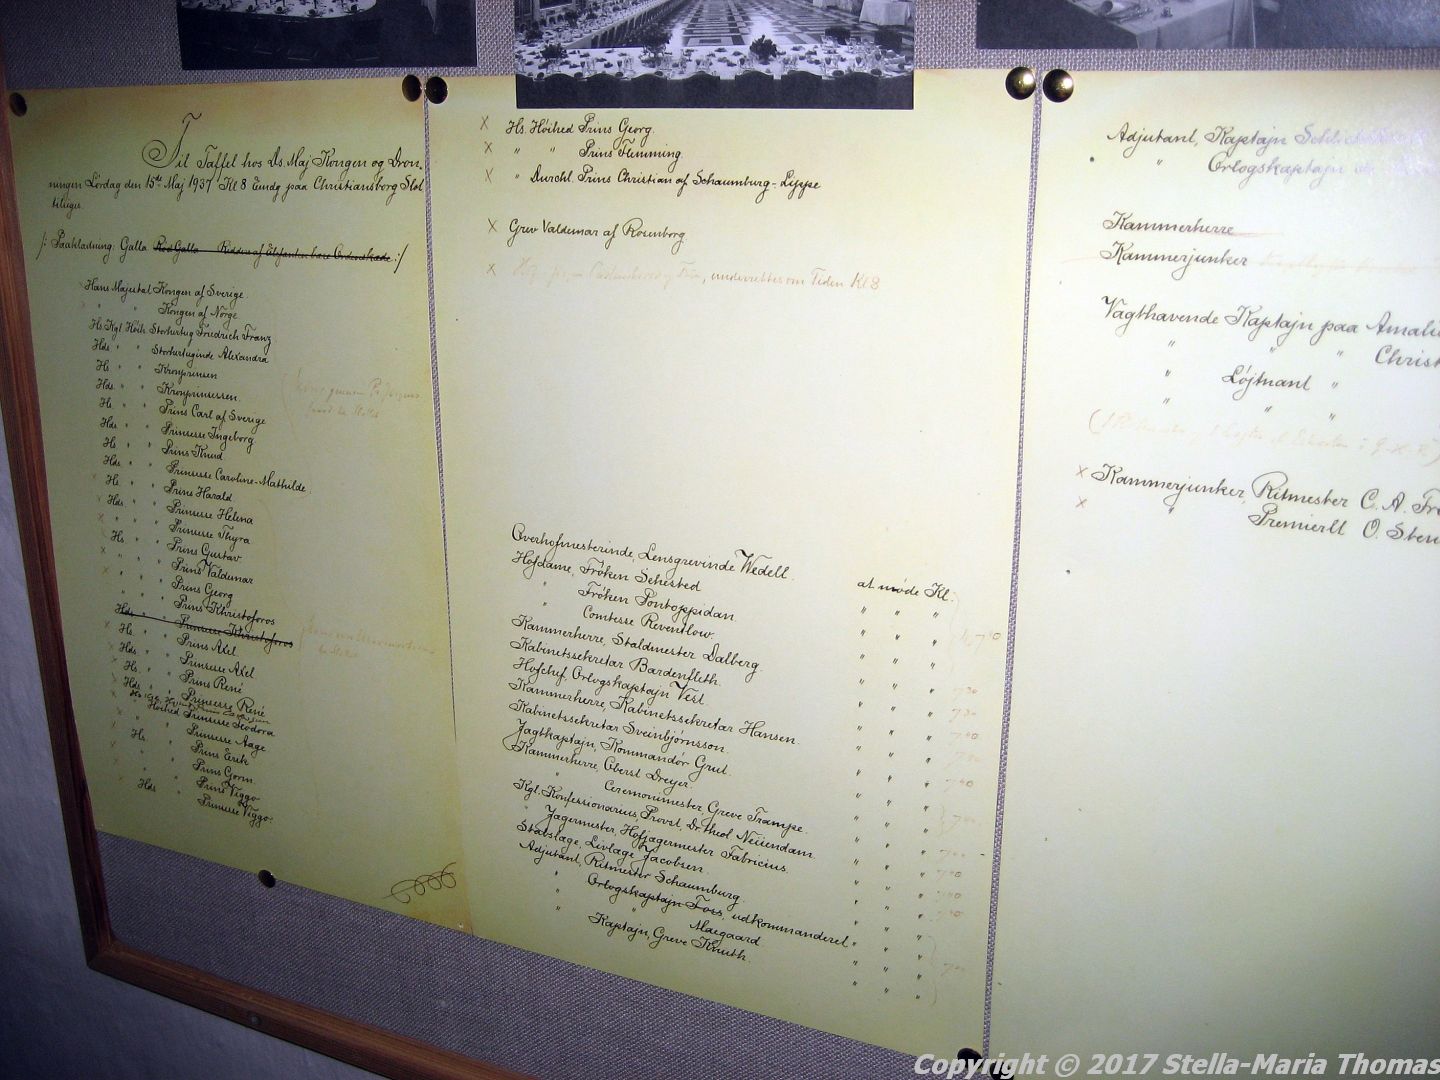 Til Taffel hos Ds. Maj Kongen og Dron.
ningen Lördag den 15de Maj 1937 Kl 8 Emdg paa Christiansborg Slot
tilsiges.
/: Paaklædning: Galla Rød Galla Riddere af Elefanten bære Ordenskæde :/
Hans Majestæt Kongen af Sverige
" " Kongen af Norge
Hs. Kgl. Höih. Storhertug Friedrich Franz
Hds. " " Storhertuginde Alexandra
Hs. " " Kronprinsen
Hds. " " Kronprinsessen.
Hs. " " Prins Carl af Sverige
Hds. " " Prinsesse Ingeborg
Hs. " " Prins Knud
Hds. " " Prinsesse Caroline-Mathilde.
× Hs. " " Prins Harald
× Hds. " " Prinsesse Helena
× " " " Prinsesse Thyra
Hs. " " Prins Gustav
× " " " Prins Valdemar
× " " " Prins Georg
" " " Prins Khristoforos
Hds. " " Prinsesse Khristoforos
× Hs. " " Prins Axel
× Hds. " " Prinsesse Axel
× Hs. " " Prins René
× Hds. " " Prinsesse René
× " Höihed Prinsesse Feodora
× " " Prinsesse Aage
× Hs. " Prins Erik
× " " Prins Gorm
× " " Prins Viggo
× Hds " Prinsesse Viggo.
× Hs. Höihed Prins Georg.
× " " Prins Flemming.
× " Durchl. Prins Christian af Schaumburg-Lippe
× Grev Valdemar af Rosenborg.
× underrettes om Tiden Kl 8
Overhofmesterinde, Lensgrevinde Wedell. at møde Kl:
Hofdame, Frøken Sehested " " "
" Frøken Pontoppidan " " "
" Comtesse Reventlow. " " "
Kammerherre, Staldmester Dalberg " " "
Kabinetssekretær Bardenfleth. " " "
Hofchef, Orlogskaptajn Vest. " " "
Kammerherre, Kabinetssekretær Hansen. " " "
Kabinetssekretær Sveinbjörnsson. " " "
Jagtkaptajn, Kommandör Grut. " " "
Kammerherre, Oberst Dreyer. " " "
" Ceremonimester, Greve Trampe. " " "
Kgl. Konfessionarius, Provst, Dr. theol Neiiendam. " " "
Jægermester, Hofjægermester Fabricius. " " "
Statslæge, Livlæge Jacobsen. " " "
Adjutant, Ritmester Schaumburg. " " "
" Orlogskaptajn Foss, udkommanderet " " "
" " Maegaard " " "
" Kaptajn, Greve Knuth. " " "
Adjutant, Kaptajn
" Orlogskaptajn
Kammerherre
Kammerjunker
Vagthavende Kaptajn paa Amali
" " " Christ
" Løjtnant "
" " "
× Kammerjunker, Ritmester C. A. Fr
× " Premierlt O. Sten
Copyright © 2017 Stella-Maria Thomas